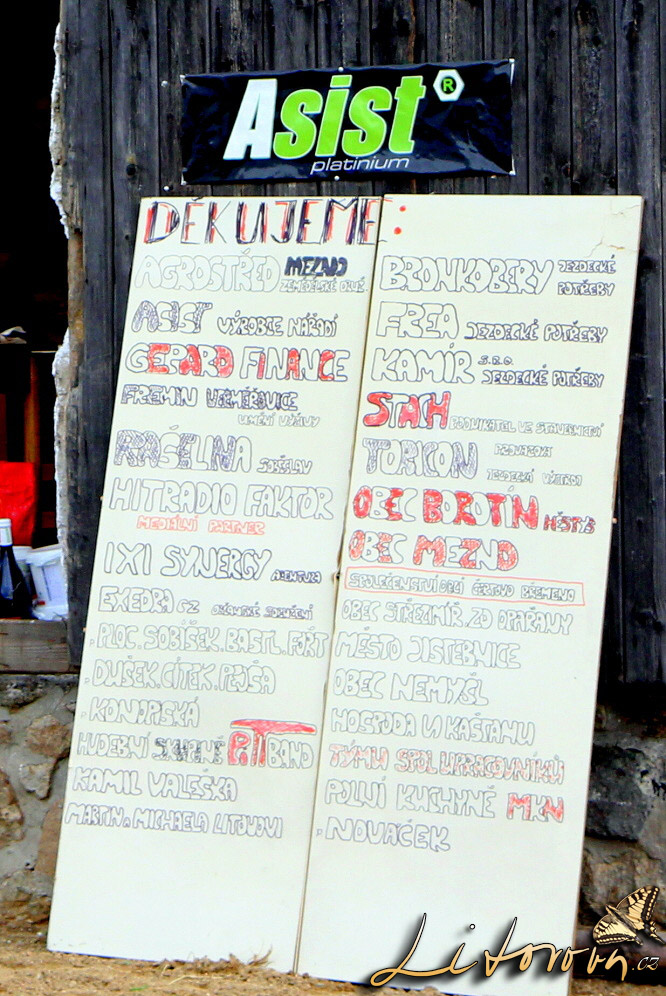 Asist ®
platinium
DĚKUJEME:
AGROSTŘED MEZNO
ZEMĚDĚLSKÉ DRUŽ.
ASIST VÝROBCE NÁŘADÍ
GEPARD FINANCE
FREMIN
UMĚNÍ VÝŽIVY
RAŠELINA SOBĚSLAV
HITRADIO FAKTOR
MEDIÁLNÍ PARTNER
IXI SYNERGY
EXEDRA CZ
. PLOC. SOBÍŠEK. BASTL. FOŘT
. DUŠEK. CÍTEK. PEJŠA
. KONOPSKÁ
HUDEBNÍ SKUPINĚ PIT BAND
KAMIL VALEŠKA
MARTIN a MICHAELA LITOVOVI
BRONKOBERY JEZDECKÉ
POTŘEBY
FREA JEZDECKÉ POTŘEBY
KAMÍR S.R.O. JEZDECKÉ POTŘEBY
STACH PODNIKATEL VE STAVEBNICTVÍ
TORICON
OBEC BOROTÍN
OBEC MEZNO
SPOLEČENSTVÍ OBCÍ ČERTOVO BŘEMENO
OBEC STŘEZIMÍŘ ZD OPAŘANY
MĚSTO JISTEBNICE
OBEC NEMYŠL
HOSPODA U KAŠTANU
TÝMU SPOLUPRACOVNÍKŮ
POLNÍ KUCHYNĚ MKN
. NOVÁČEK
Litovova.cz